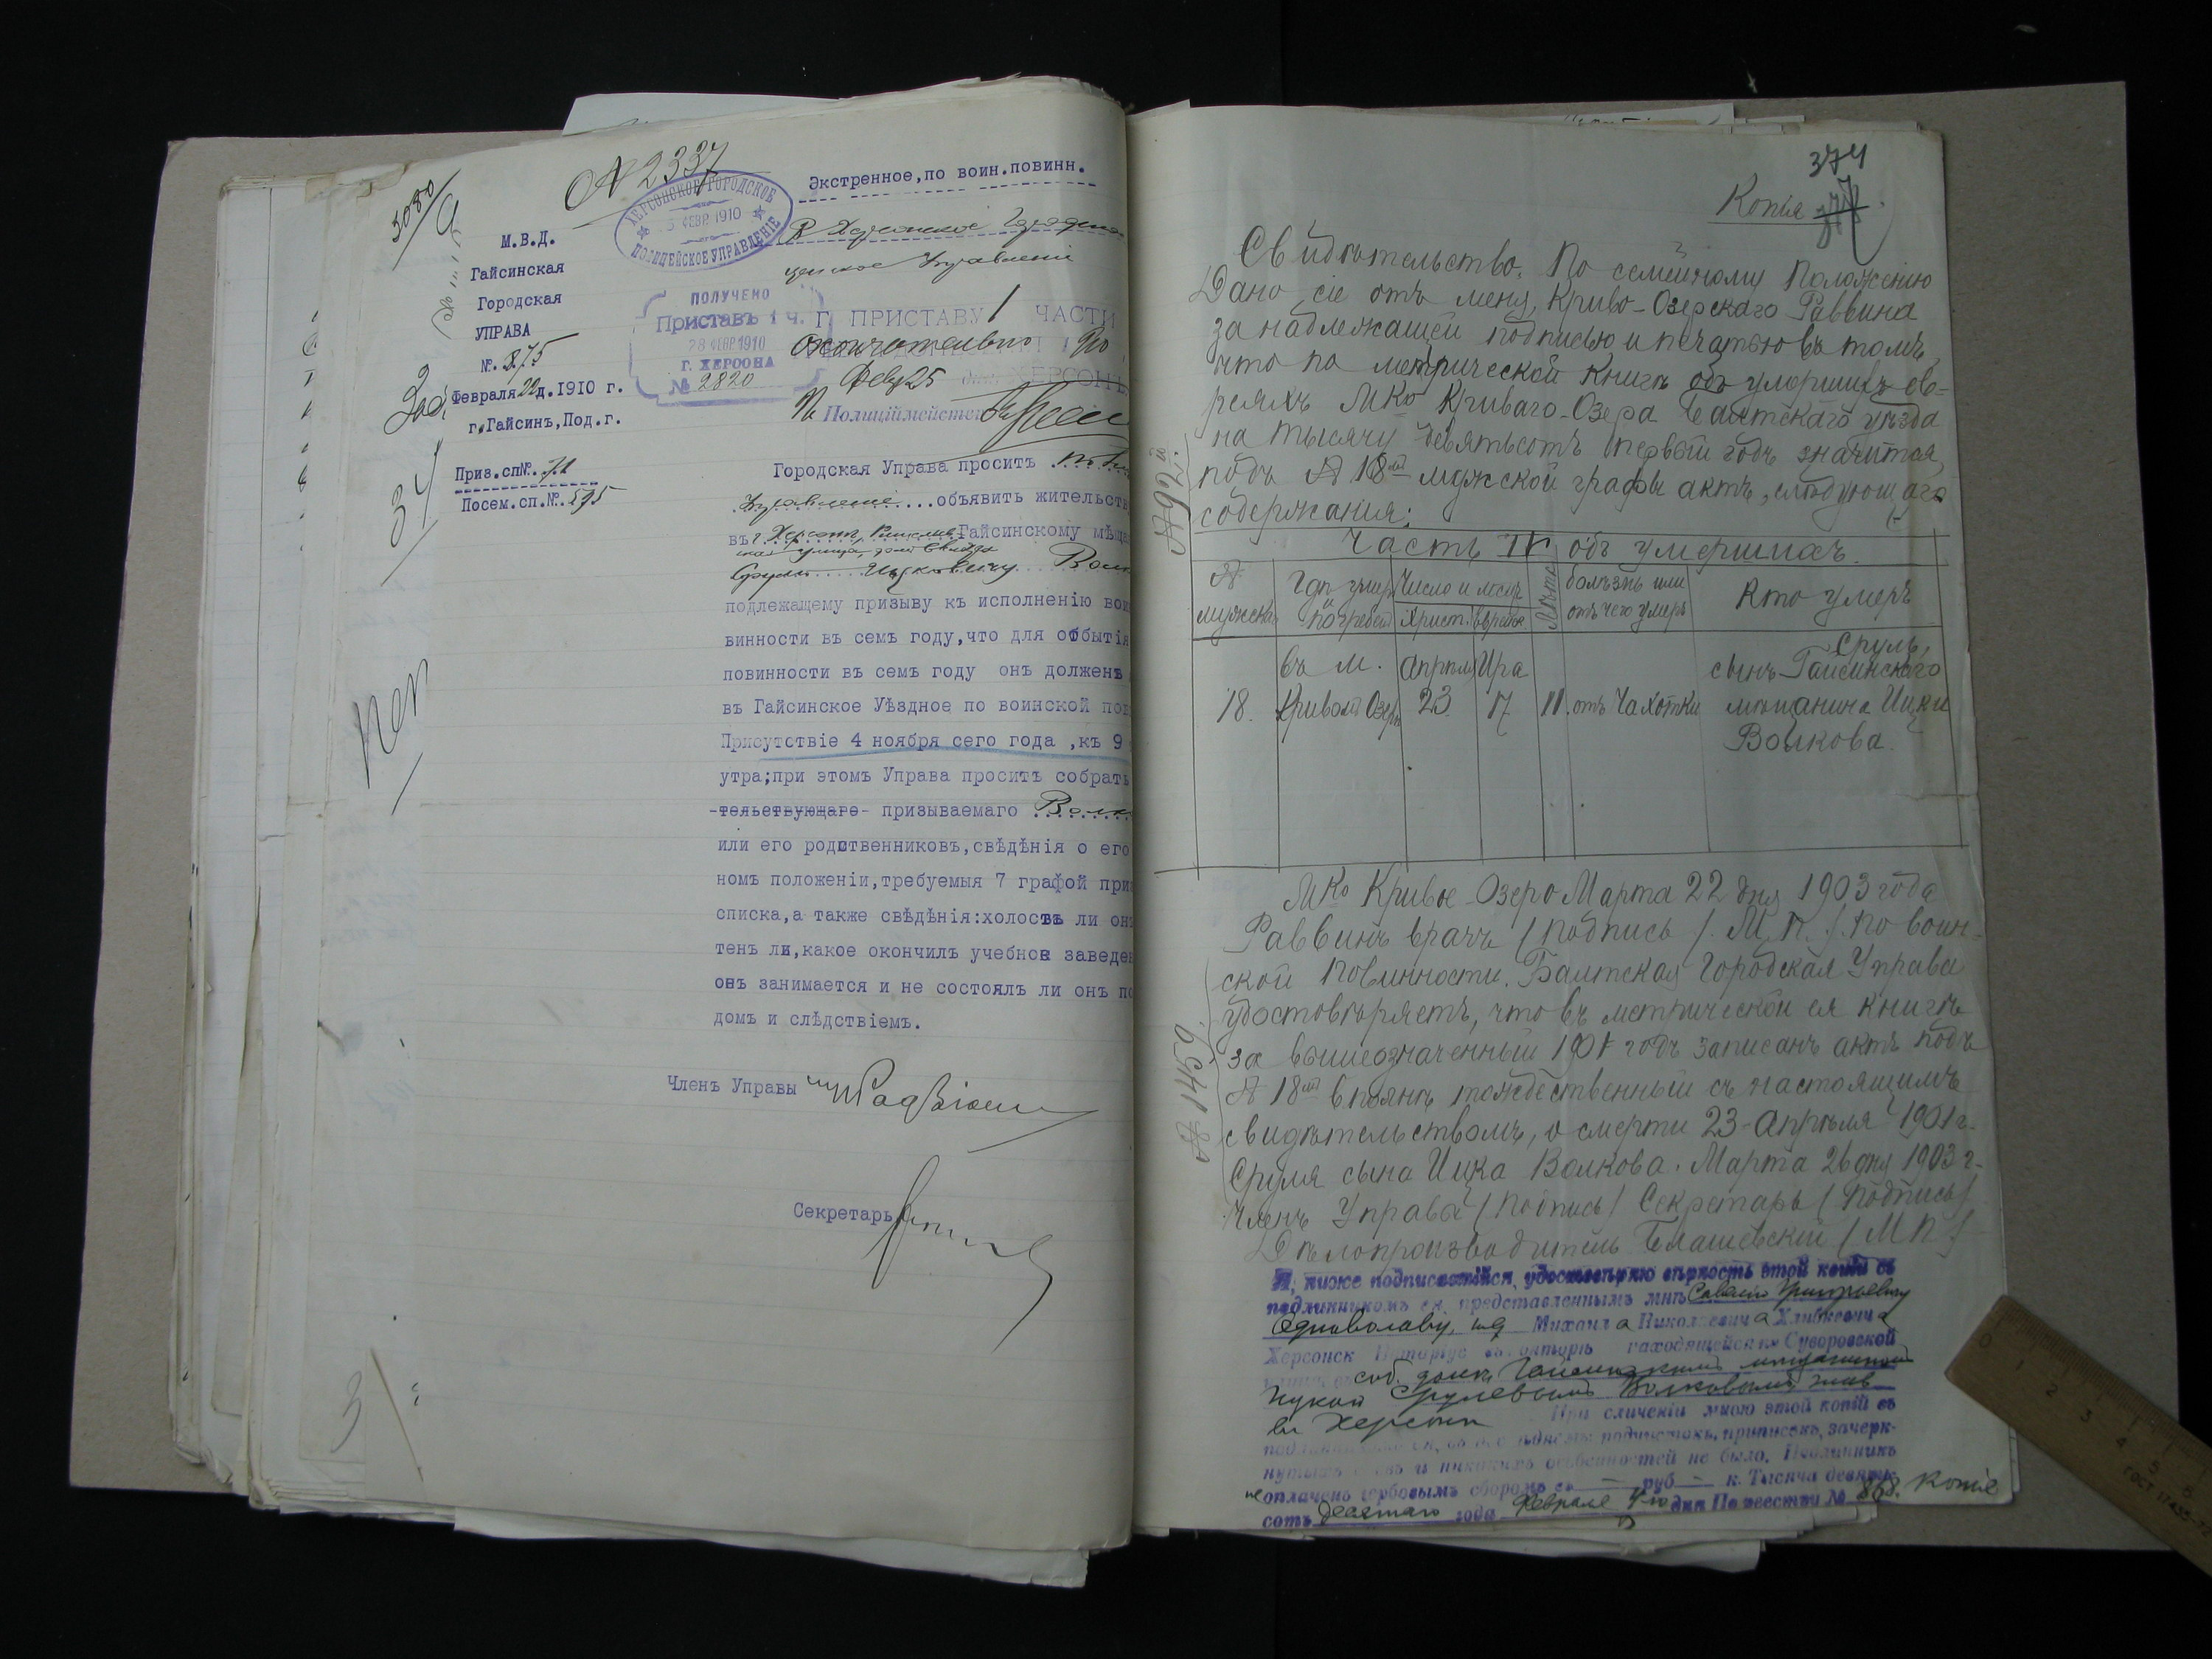 № 2337
3080
Экстренное, по воин. повинн.
ХЕРСОНСКОЕ ГОРОДСКОЕ
ФЕВР 1910
ПОЛИЦЕЙСКОЕ УПРАВЛЕНІЕ
М.В.Д.
Гайсинская
Городская
УПРАВА
№. 875
Февраля 22 д. 1910 г.
г. Гайсинъ, Под. г.
Приз. сп №. 71
Посем. сп. №. 595
ПОЛУЧЕНО
Приставъ 1 ч.
28 ФЕВР 1910
Г. ХЕРСОНА
№ 2820
Г. ПРИСТАВУ 1 ЧАСТИ
окончательно
Фев 25
Полиціймейстеръ
Городская Управа проситъ
Управленіе .... объявить жительств
въ г. Херсонъ, Гайсинскому мѣщ
улица, домъ
Срулю Ицковичу Волк
подлежащему призыву къ исполненію вои
винности въ семъ году, что для отбытія
повинности въ семъ году онъ долженъ
въ Гайсинское Уѣздное по воинской пов
Присутствіе 4 ноября сего года, къ 9
утра; при этомъ Управа проситъ собрать
-тельствующаго- призываемаго Волк
или его родственниковъ, свѣдѣнія о его
номъ положеніи, требуемыя 7 графой приз
списка, а также свѣдѣнія: холостъ ли онъ
тенъ ли, какое окончилъ учебное заведен
онъ занимается и не состоялъ ли онъ по
домъ и слѣдствіемъ.
Членъ Управы
Секретарь
374
Копія
Свидѣтельство. По семейному Положенію
Дано сіе отъ меня, Криво-Озерскаго Раввина
за надлежащей подписью и печатью въ томъ,
что по метрической книгѣ объ умершихъ ев-
реяхъ Мко Криваго-Озера Балтскаго уѣзда
на тысячу девятьсотъ первый годъ значится,
подъ № 18мъ мужской графы актъ, слѣдующаго
содержания:
Часть IV объ умершихъ.
№ мужеска
Гдѣ умеръ и погребенъ
Число и мѣсяц
Христ. Еврейс
Лѣта
болѣзнь или отъ чего умеръ
Кто умеръ
18. въ м. Кривомъ Озерѣ
Апрѣля 23
Ира 17
11. отъ Чахотки
Сруль,
сынъ Гайсинскаго
мѣщанина Ицки
Волкова.
Мко Кривое-Озеро Марта 22 дня 1903 года
Раввинъ врачъ /подпись/. М. П. /. По воин-
ской повинности. Балтская Городская Управа
удостовѣряетъ, что въ метрической ея книгѣ
за вышеозначенный 1901 годъ записанъ актъ подъ
№ 18мъ вполнѣ тождественный съ настоящимъ
свидѣтельствомъ, о смерти 23-Апрѣля 1901 г.
Сруля сына Ицка Волкова. Марта 26 дня 1903 г-
Членъ Управы /подпись/ Секретарь /подпись/
Дѣлопроизводитель /М П/
Я, ниже подписавшійся, удостовѣряю вѣрность этой копіи съ
подлинникомъ ея, представленнымъ мнѣ
Михаила Николаевича
Херсонск Нотаріус конторѣ находящейся на Суворовской
соб. домѣ, Гайсинскимъ мѣщаниномъ
Ицкой Срулевымъ Волковымъ жив.
въ Херсонѣ При сличеніи мною этой копіи съ
подлинникомъ ея, въ послѣднемъ подчистокъ, приписокъ, зачерк-
нутыхъ словъ и никакихъ особенностей не было. Подлинникъ
не оплаченъ гербовымъ сборомъ въ — руб — к. Тысяча девять-
сотъ десятаго года Февраля 4го дня По реестру № 868. Копіе